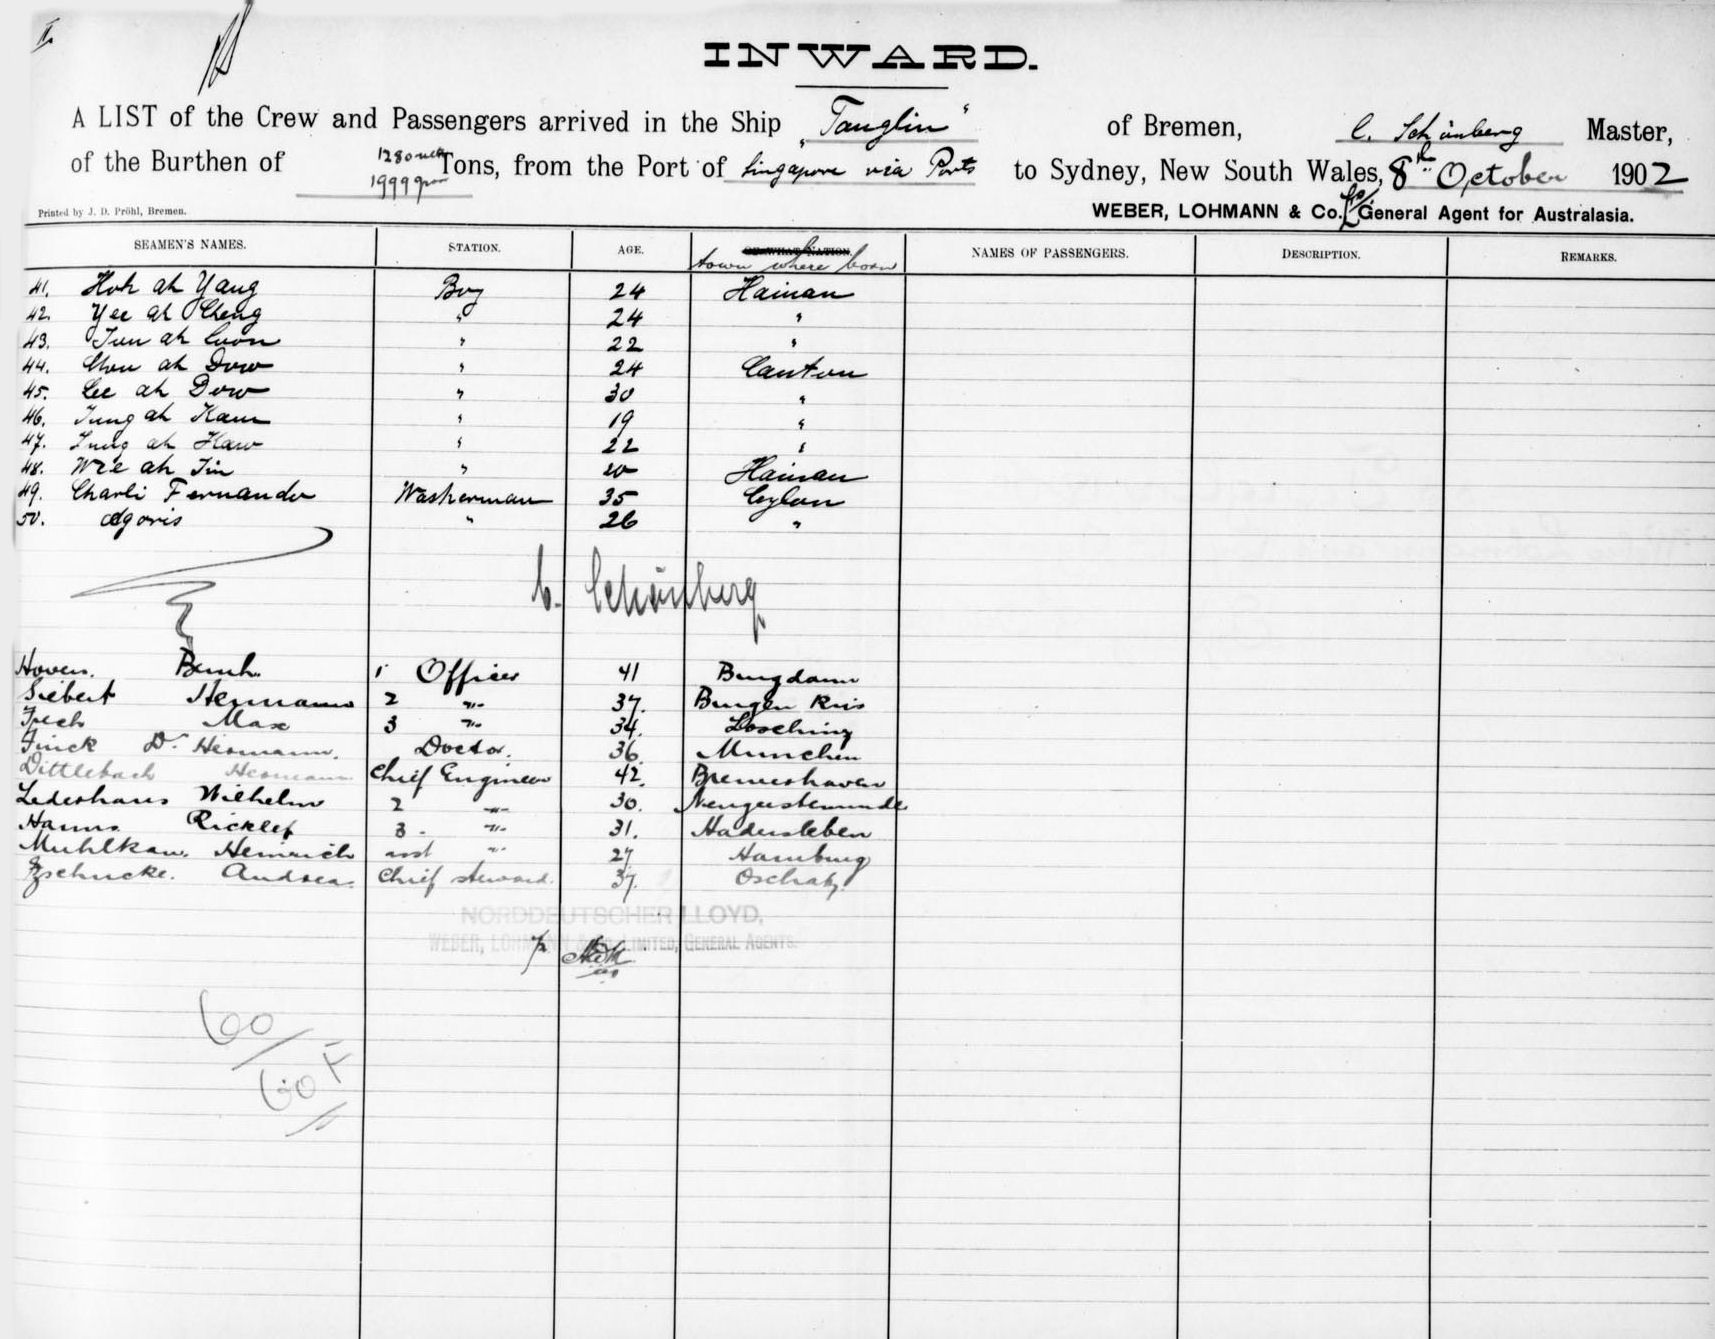 II.
INWARD.
A LIST of the Crew and Passengers arrived in the Ship "Tanglin" of Bremen, C. Schönberg Master,
of the Burthen of 1280 nett 1999 gross Tons, from the Port of Singapore via Ports to Sydney, New South Wales, 8th October 1902
Printed by J. D. Pröhl, Bremen.
WEBER, LOHMANN & Co. Ld General Agent for Australasia.
SEAMEN'S NAMES. STATION. AGE. OF WHAT NATION. NAMES OF PASSENGERS. DESCRIPTION. REMARKS.
town where born
41. Hok ah Yang Boy 24 Hainan
42. Yee ah Cheng " 24 "
43. Tun ah Cuon " 22 "
44. Chou ah Dow " 24 Canton
45. Lee ah Dow " 30 "
46. Tung ah Kam " 19 "
47. Tung ah Haw " 22 "
48. Wee ah Tin " 20 Hainan
49. Charli Fernando Washerman 35 Ceylon
50. Agoris " 26 "
C. Schönberg
Hoven. Bernh. 1 Officer 41 Burgdamm
Siebert Hermann 2 " 37.
Frech Max 3 " 34. Losching
Finck Dr. Hermann. Doctor. 36. München
Dittlebach Hermann Chief Engineer 42. Bremerhaven
Lederhaus Wilhelm 2 " 30.
Hanns. Ricklef 3. " 31. Hadersleben
Muhlkau. Heinrich asst " 27 Hamburg
Zschucke. Andreas. Chief steward. 37. Oschatz.
NORDDEUTSCHER LLOYD,
WEBER, LOHMANN & Co. LIMITED, GENERAL AGENTS.
60
60 F